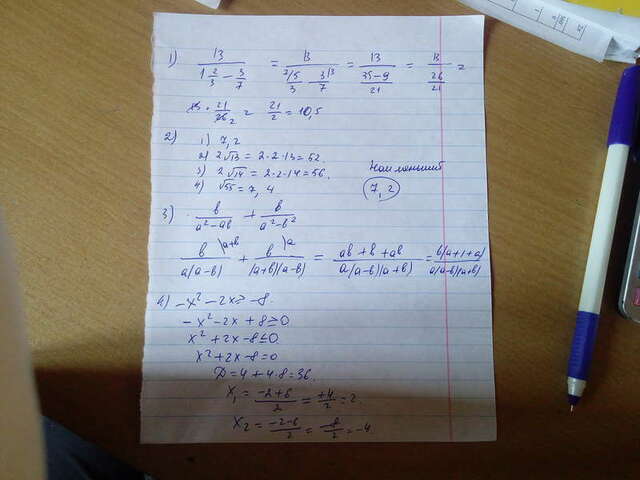 1) 13/(1 2/3 - 3/7) = 13/(5/3 - 3/7) = 13/((35-9)/21) = 13/(26/21) =
13 · 21/26 = 21/2 = 10,5
2) 1) 7,2
2) 2√13 = 2·2·13 = 52.
3) 2√14 = 2·2·14 = 56.
4) √55 = 7,4
Наименьший
7,2
3) b/(a²-ab) + b/(a²-b²)
b/(a(a-b)) \a+b + b/((a+b)(a-b)) \a = (ab+b+ab)/(a(a-b)(a+b)) = b(a+1+a)/(a(a-b)(a+b))
4) -x²-2x≥-8
-x²-2x+8≥0
x²+2x-8≤0
x²+2x-8=0
D=4+4·8=36.
x₁ = (-2+6)/2 = +4/2 = 2
x₂ = (-2-6)/2 = -8/2 = -4